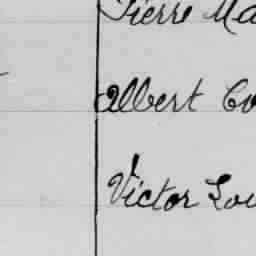 Pierre Ma
Albert Co
Victor Lou